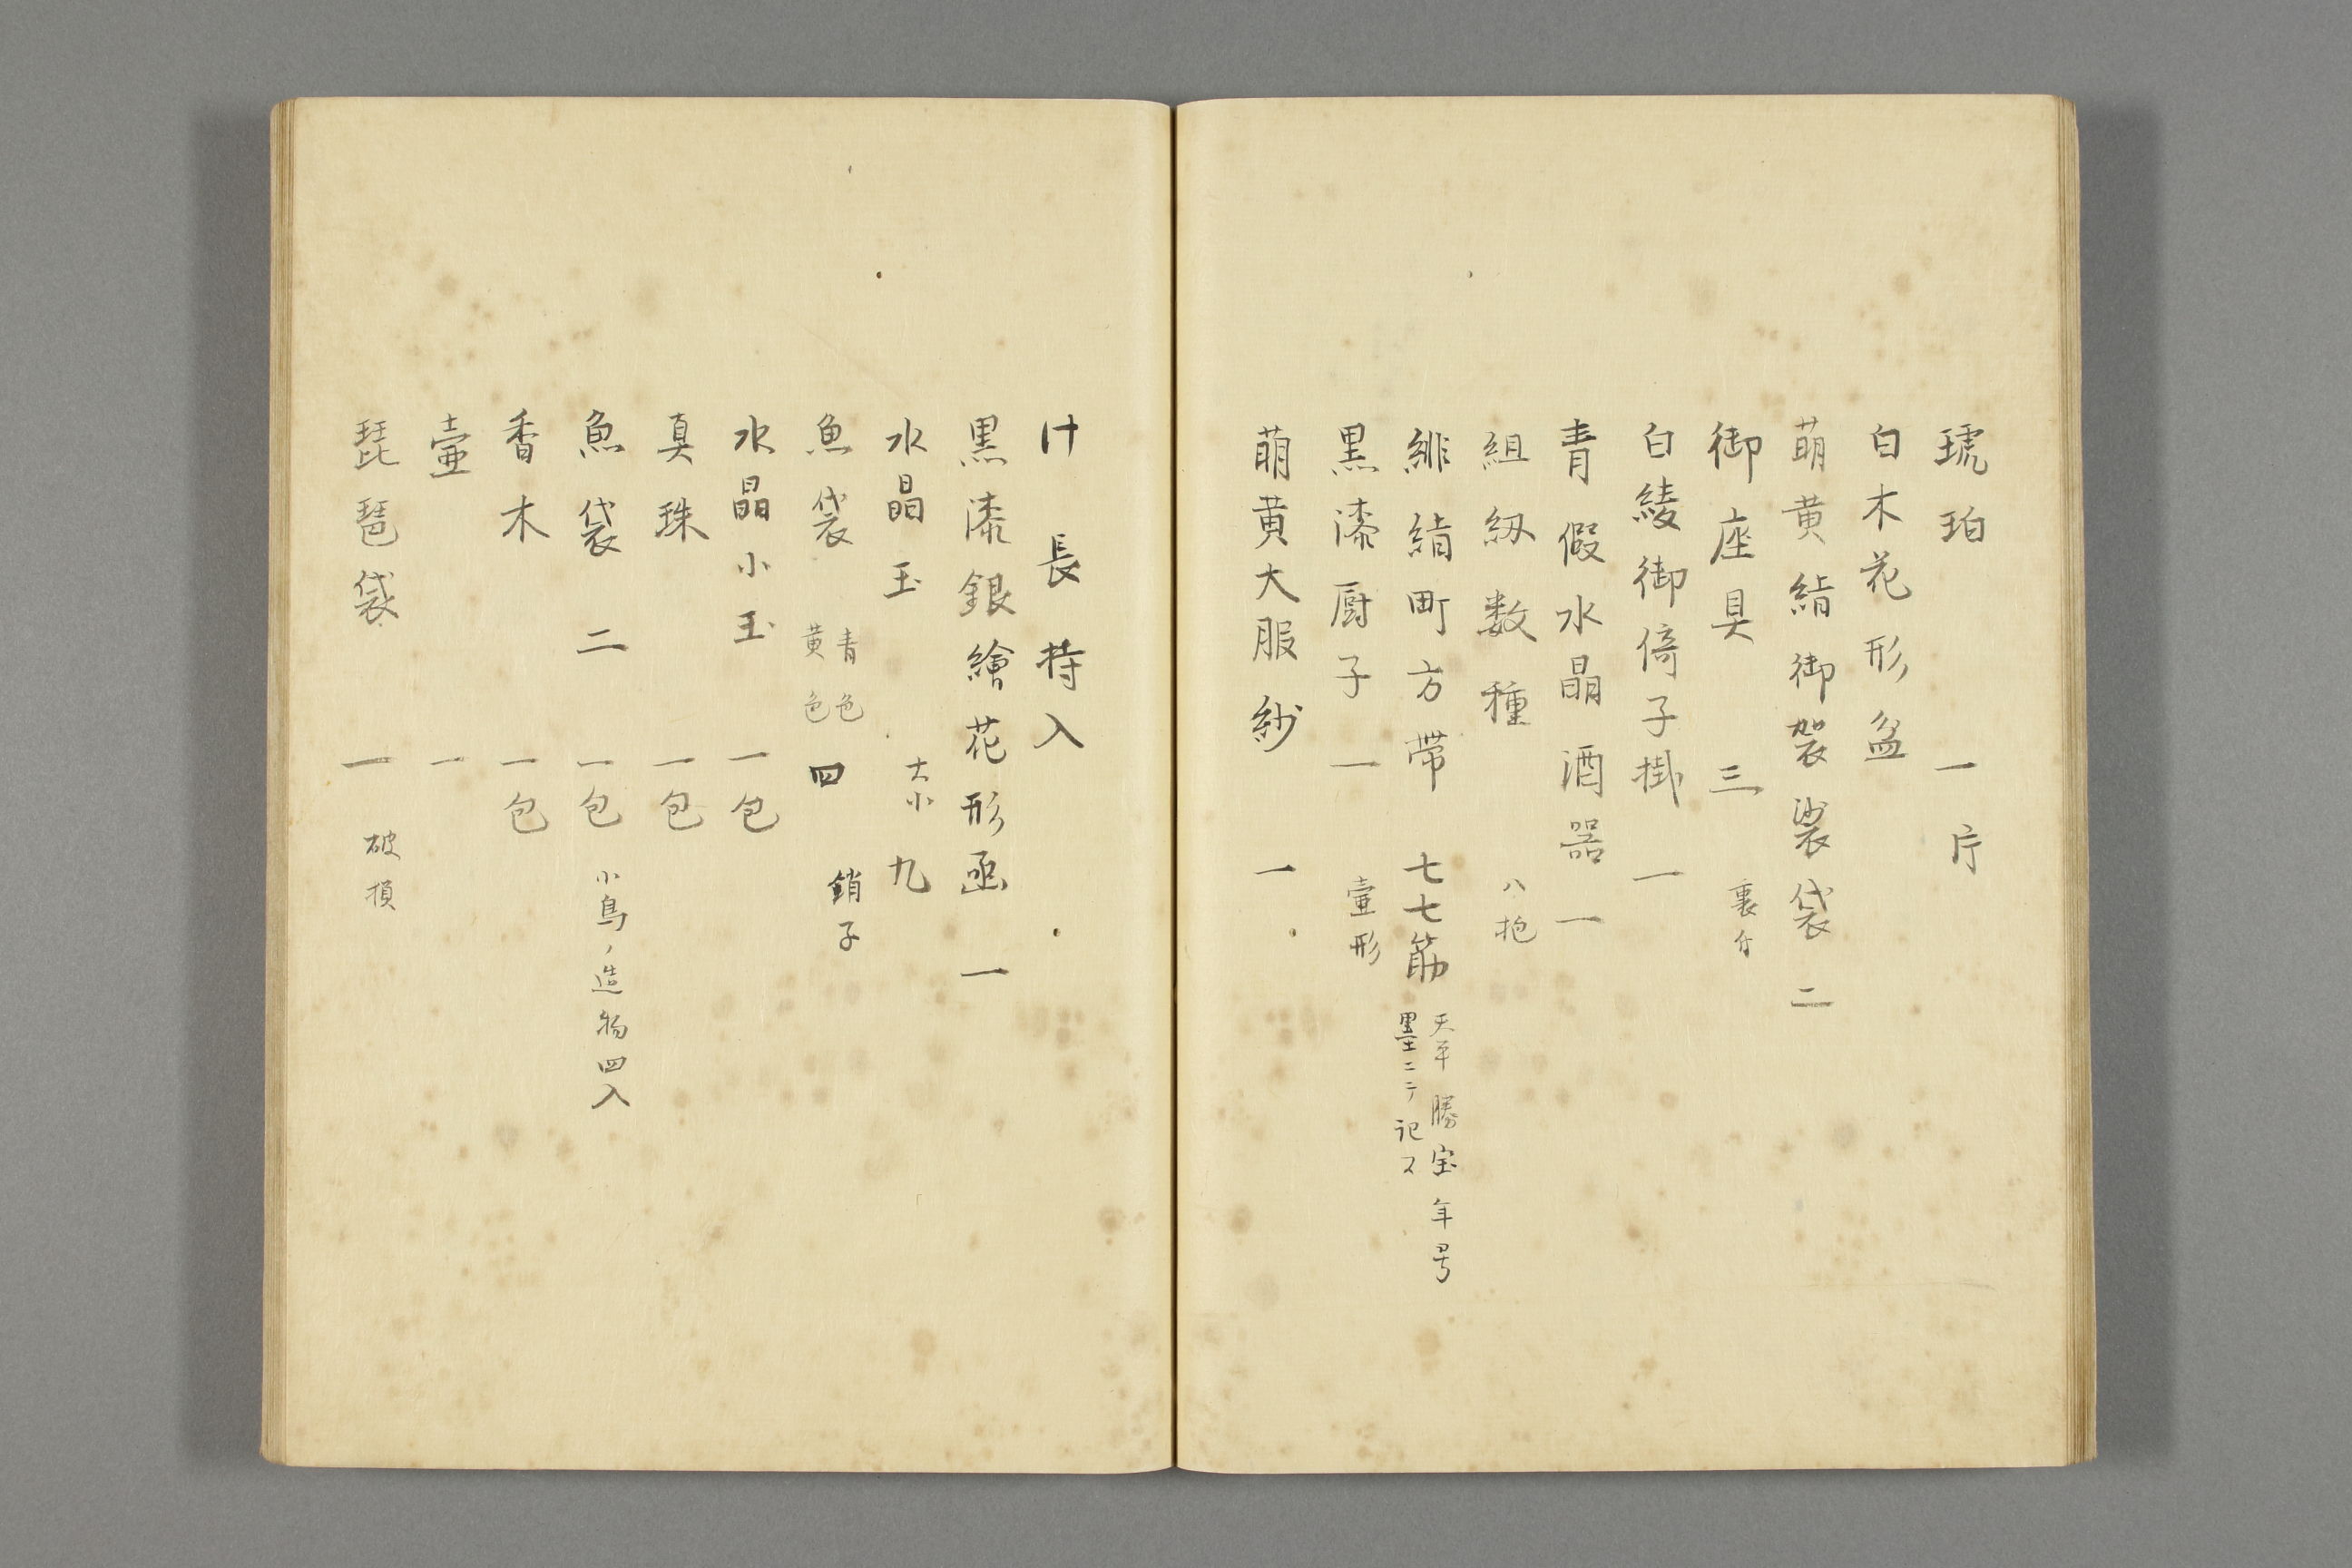 琥珀 一片
白木花形盆
萌黄絹御袈裟袋 二
御座具 三 裏分
白綾御倚子掛 一
青假水晶酒器 一
組紐数種 八抱
緋絹町方帯 七七筋 天平勝宝年号
墨ニテ記ス
黒漆厨子 一 壷形
萌黄大服紗 一
什長持入
黒漆銀繪花形函 一
水晶玉 大小 九
魚袋 青色
黄色 四 銷子
水晶小玉 一包
真珠 一包
魚袋 二 一包 小鳥ノ造物四入
香木 一包
壷 一
琵琶袋 一 破損